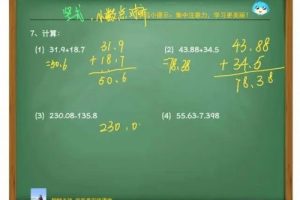 小数点对齐
小提示：集中注意力，学习更美丽！
7、计算：
(1) 31.9+18.7
=50.6
31.9
+ 18.7
50.6
(2) 43.88+34.5
=78.38
43.88
+ 34.5
78.38
(3) 230.08-135.8
230.0
(4) 55.63-7.398